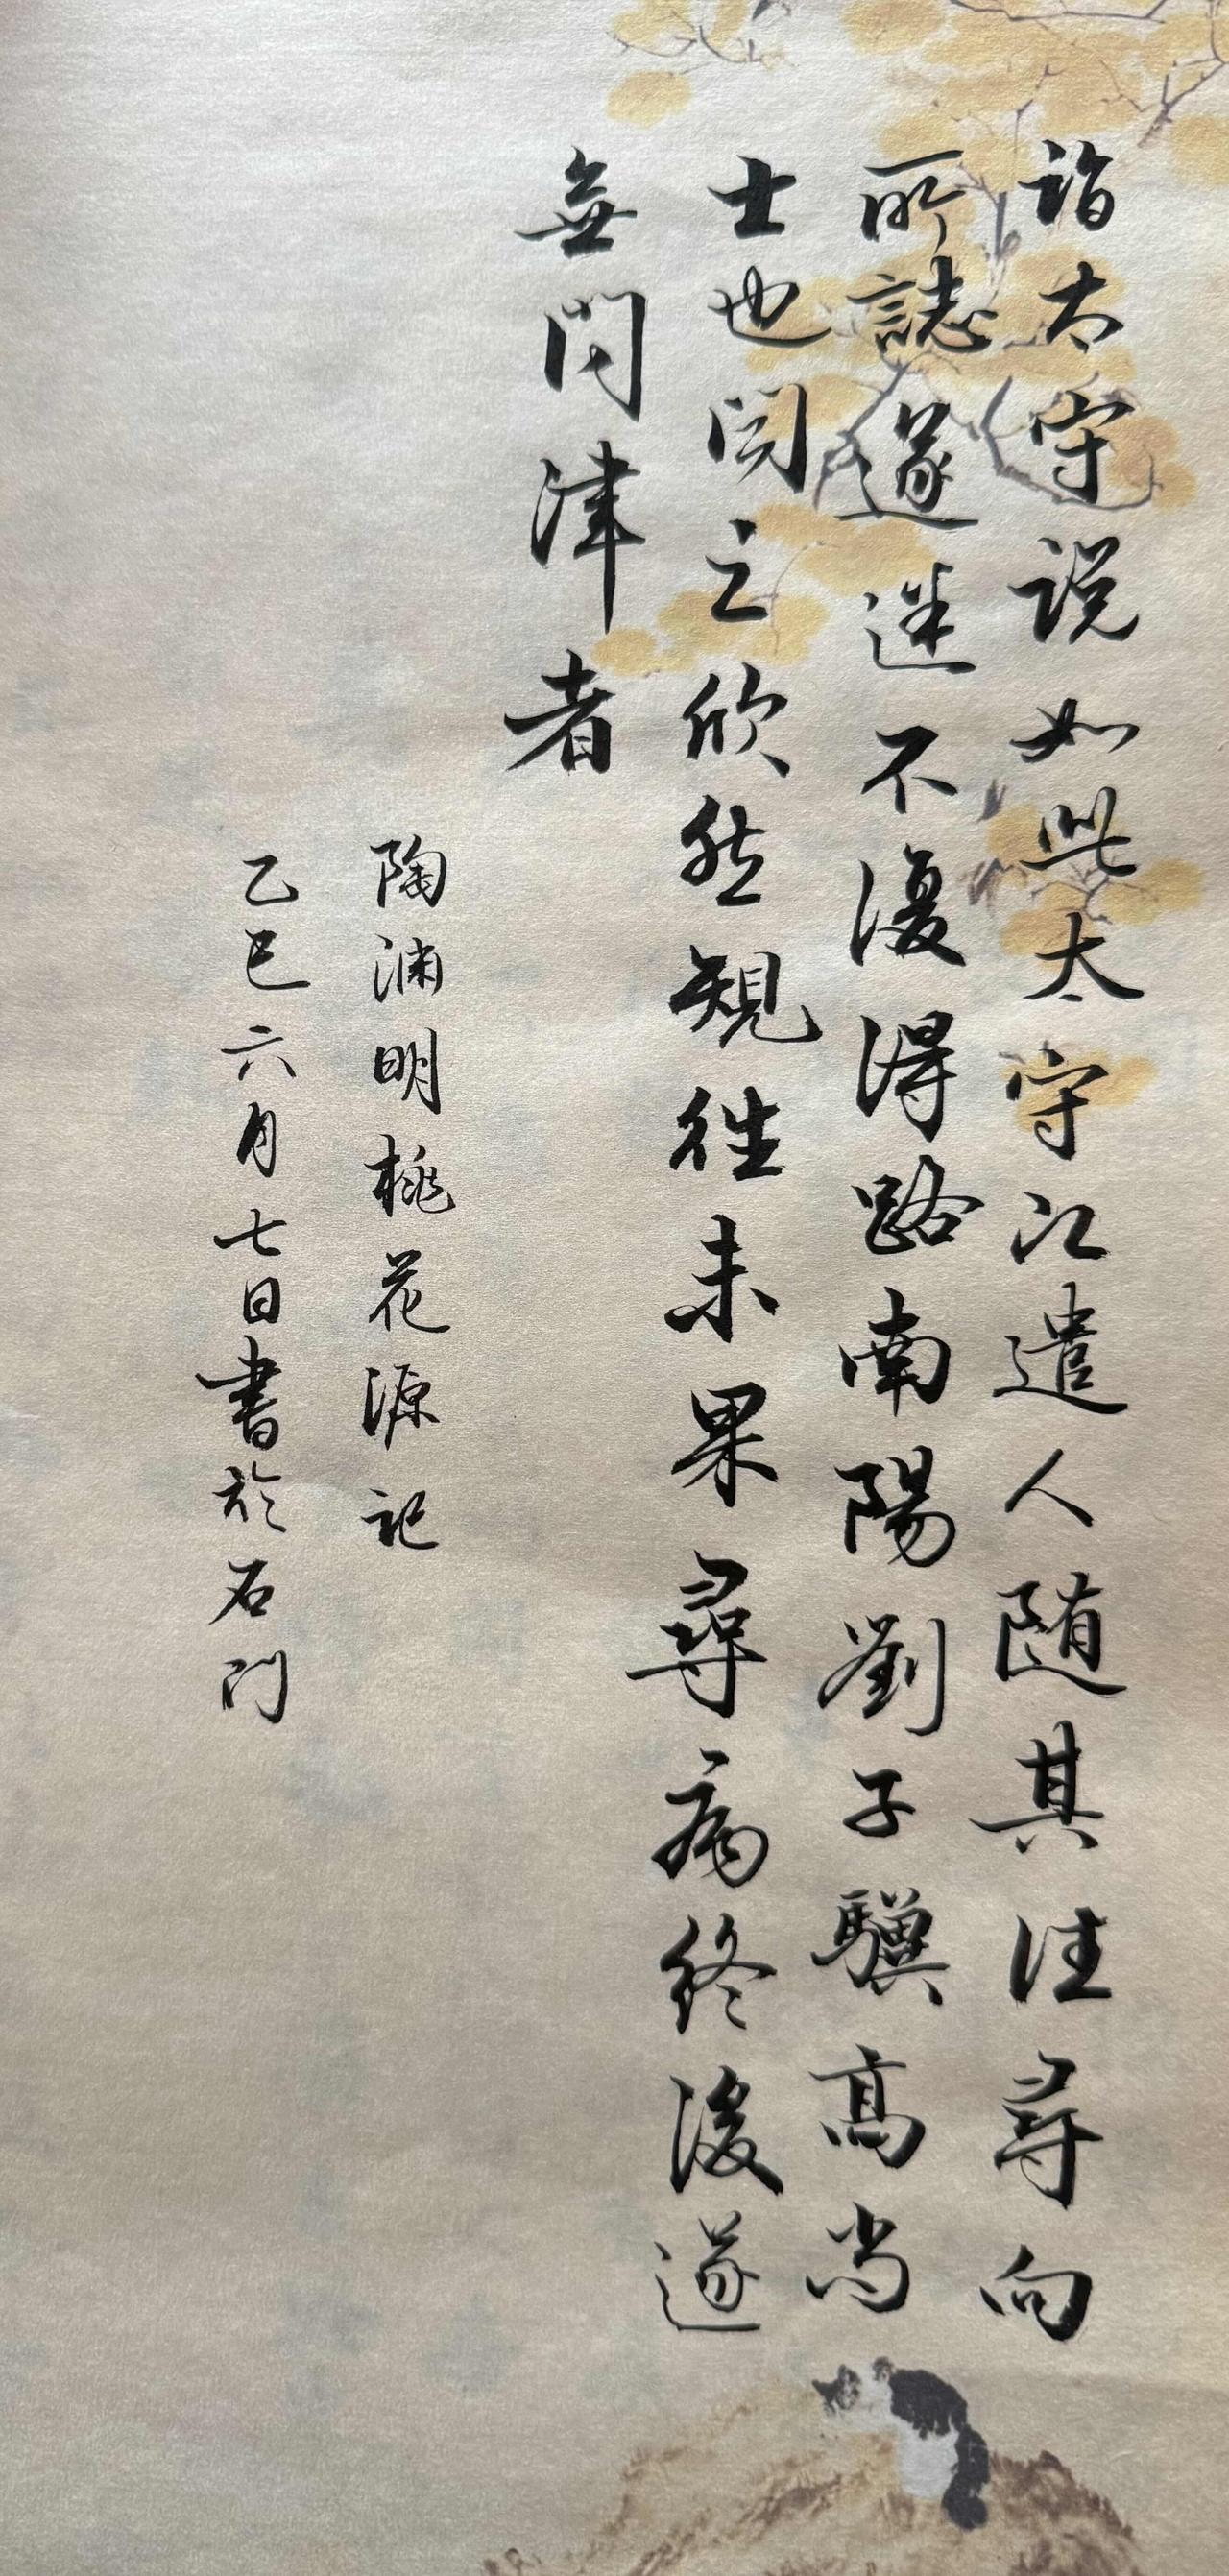 詣太守说如此太守即遣人随其往尋向
所誌遂迷不復得路南陽劉子驥高尚
士也闻之欣然規往未果尋病終後遂
無问津者
陶渊明桃花源记
乙巳六月七日書於石门